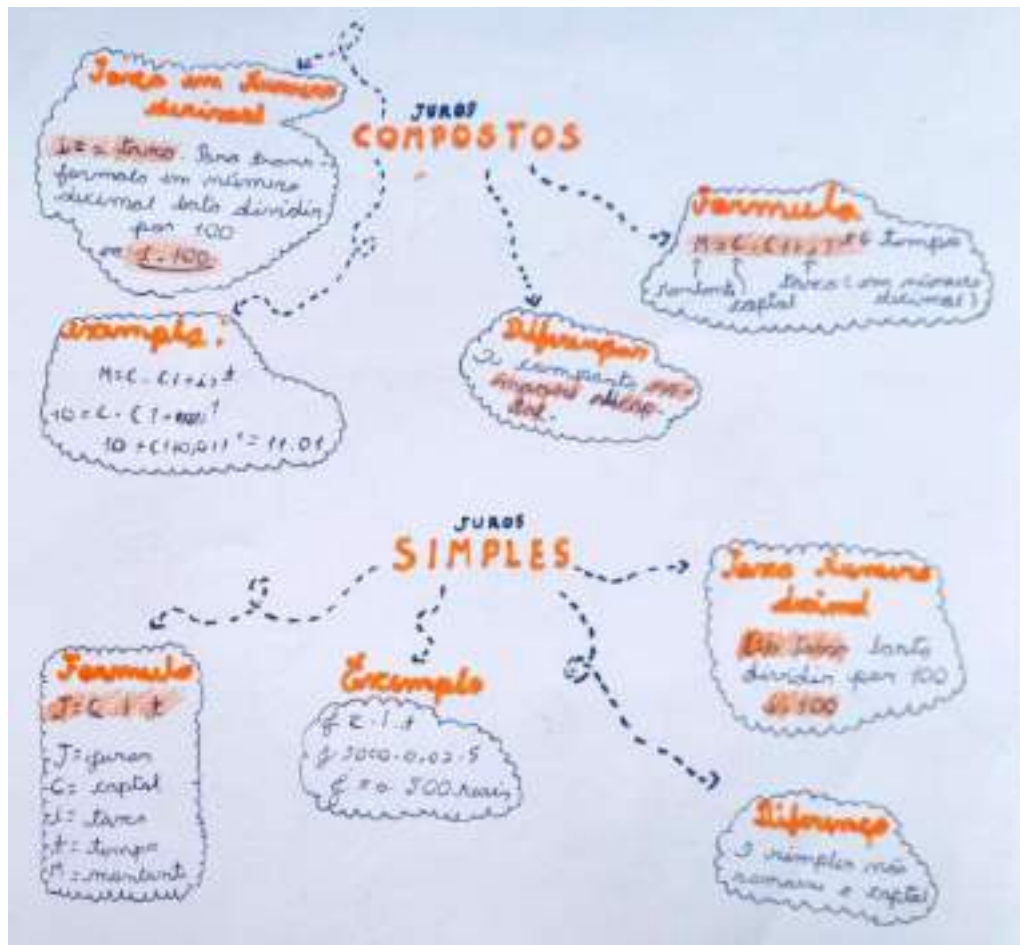 JUROS
COMPOSTOS
Taxa em Numero
decimal
i = a taxa. Para trans-
formalo em número
decimal basta dividir
por 100
100
Formula
M = C . ( 1 + i ) t tempo
montante
capital
taxa ( em número
decimal )
exemplo :
M = C . ( 1 + i ) t
10 = C . ( 1 +
10 + ( 1+0,01) ¹ = 11.01
Diferença
O composto
JUROS
SIMPLES
Formula
J = C . i . t
J = juros
C = capital
i = taxa
t = tempo
M = montante
Exemplo
J C . i . t
J 5000 . 0,02 . 5
500 reais
Taxa Numero
decimal
taxa basta
dividir por 100
100
Diferença
simples não
o capital